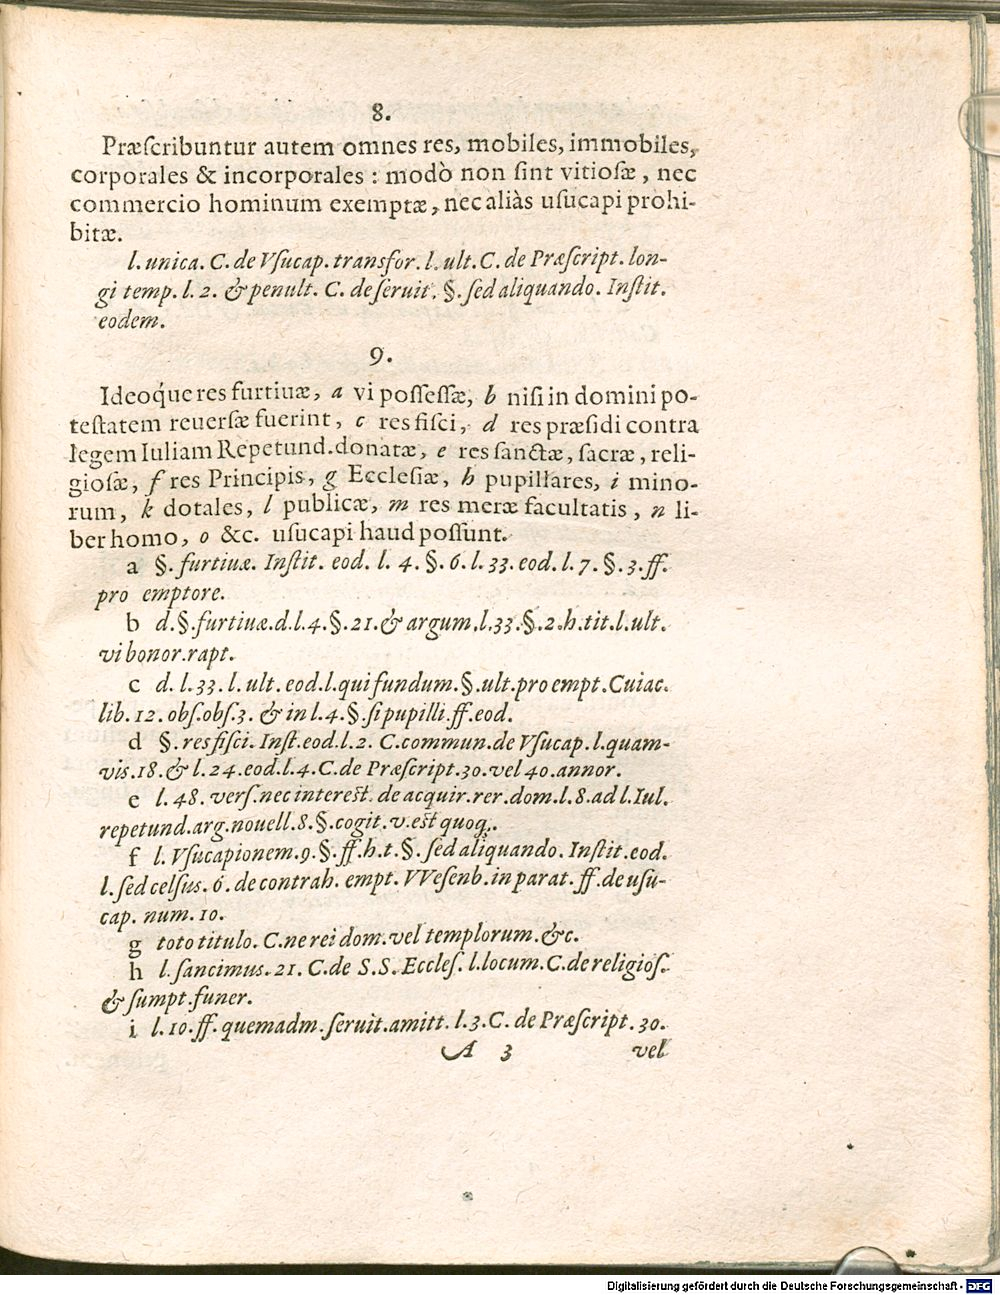 8.
Præſcribuntur autem omnes res, mobiles, immobiles,
corporales & incorporales : modò non ſint vitioſæ, nec
commercio hominum exemptæ, nec aliàs uſucapi prohi-
bitæ.
l. unica. C. de Vſucap. transfor. l. ult. C. de Præſcript. lon-
gi temp. l. 2. & penult. C. de ſeruit. §. ſed aliquando. Inſtit.
eodem.
9.
Ideoq́ue res furtiuæ, a vi poſſeſſæ, b niſi in domini po-
teſtatem reuerſæ fuerint, c res fiſci, d res præſidi contra
legem Iuliam Repetund. donatæ, e res ſanctæ, ſacræ, reli-
gioſæ, f res Principis, g Eccleſiæ, h pupillares, i mino-
rum, k dotales, l publicæ, m res meræ facultatis, n li-
ber homo, o &c. uſucapi haud poſſunt.
a §. furtiuæ. Inſtit. eod. l. 4. §. 6. l. 33. eod. l. 7. §. 3. ff.
pro emptore.
b d. §. furtiuæ. d. l. 4. §. 21. & argum. l. 33. §. 2. h. tit. l. ult.
vi bonor. rapt.
c d. l. 33. l. ult. eod. l. qui fundum. §. ult. pro empt. Cuiac.
lib. 12. obſ. obſ. 3. & in l. 4. §. ſi pupilli. ff. eod.
d §. res fiſci. Inſt. eod. l. 2. C. commun. de Vſucap. l. quam-
vis. 18. & l. 24. eod. l. 4. C. de Præſcript. 30. vel 40. annor.
e l. 48. verſ. nec intereſt. de acquir. rer. dom. l. 8. ad l. Iul.
repetund. arg. nouell. 8. §. cogit. v. eſt quoq;.
f l. Vſucapionem. 9. §. ff. h. t. §. ſed aliquando. Inſtit. eod.
l. ſed celſus. 6. de contrah. empt. VVeſenb. in parat. ff. de uſu-
cap. num. 10.
g toto titulo. C. ne rei dom. vel templorum. &c.
h l. ſancimus. 21. C. de S. S. Eccleſ. l. locum. C. de religioſ.
& ſumpt. funer.
i l. 10. ff. quemadm. ſeruit. amitt. l. 3. C. de Præſcript. 30.
A 3 vel
Digitalisierung gefördert durch die Deutsche Forschungsgemeinschaft - DFG